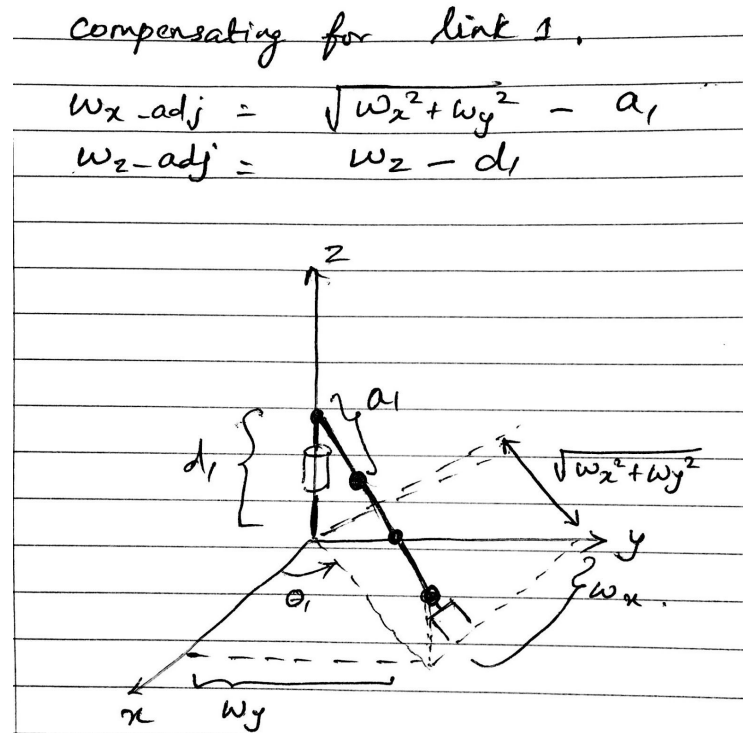 compensating for link 1.
wx_adj = √(wx² + wy²) - a₁
wz_adj = wz - d₁
z
a₁
d₁
√(wx² + wy²)
y
wx.
θ₁
x
wy